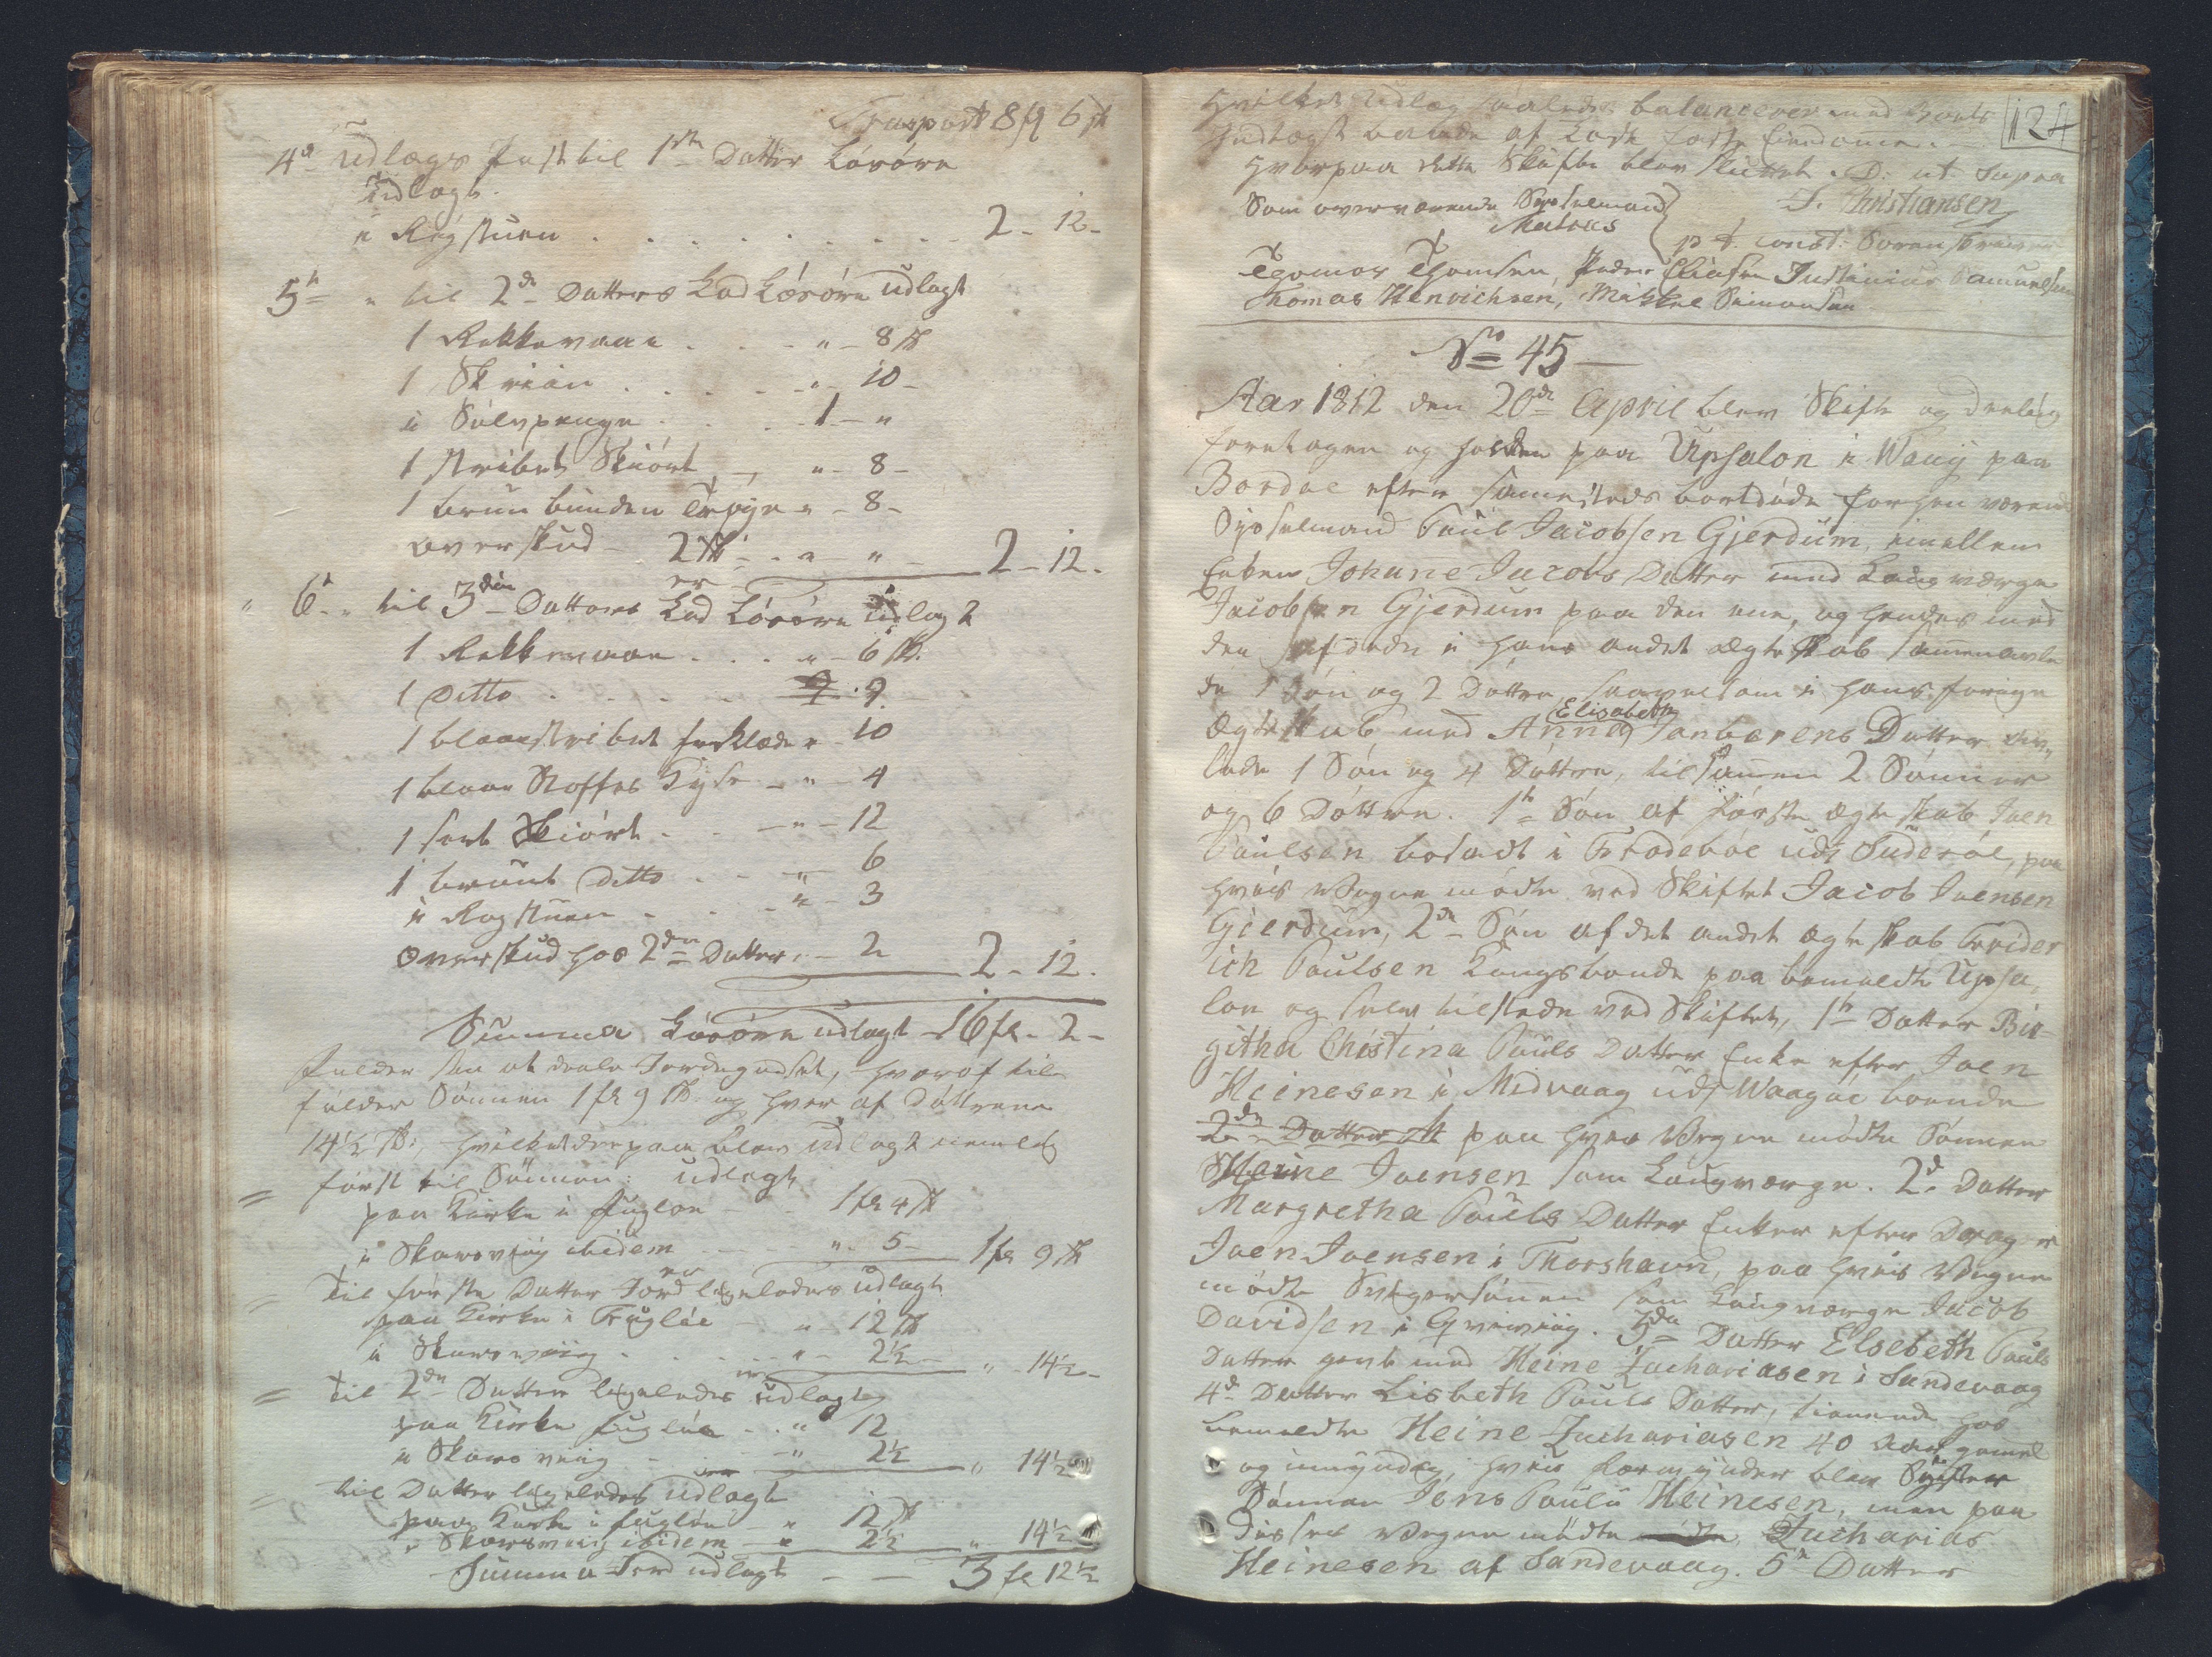 Transport 8 fl 6 sk
4de udlægs Post til 1ste Datter Løsøre
udlagt.
i Røgstuen . . . 2 - 12 -
5te " til 2den Datters Lod Løsøre udlagt
1 Rekkevaae . . . " - 8 sk
1 Skriin . . . " - 10 -
i Sølvpenge . . . 1 - "
1 stribet Skiørt - " - 8 -
1 bruun bunden Trøye " - 8 -
overskud - 2 sk - " - " - 2 - 12 -
" 6te " til 3die Datters Lod Løsøre er udlagt
1 Rekkevaae . . . " - 6 sk
1 Ditto . . . 9
1 blaastribet forklæde " - 10
1 blaae Stoffes Tryie - " - 4
1 sort Skiørt . . - " - 12
1 bruunt Ditto . . - " 6
i Røgstuen . . . " - 3
overskud hos 2den Datter . - 2 2 - 12 .
Summa Løsøre udlagt - 16 fl - 2 -
Falder saa at deele Jordegodset, hvoraf til
falder Sønnen 1 fl 9 sk og hver af Døttrene
14½ sk, hvilket derpaa blev udlagt nemlig
først til Sønnen: udlagt
paa Kirke i Fugløe - - 1 fl 4 sk
i Skarsviig ibidem - - " - 5 - 1 fl 9 sk
Til første Datter Jord er ligeledes udlagt
paa Kirke i Fugløe - " 12 sk
i Skarsviig . . . " - 2½ - " - 14½ -
til 2den Datter ligeledes er udlagt
paa Kirke Fugløe - . " 12
i Skarsviig - - " 2½ " 14½
til Datter ligeledes er udlagt
paa Kirke i Fugløe - " 12 sk
i Skarsviig ibidem - " 2½ " 14½
Summa Jord udlagt - - 3 fl 12½
124
Hvilket udlæg saaledes balancerer med
Indtægt af faste Eiendomme.
Hvorpaa dette Skifte blev sluttet. D: ut supra
Som overværende Sysselmand J. Christiansen
p t. const: Sorenskriver
Thomas Thomsen, Peder Eliasen Justinius Samuelsen
Thomas Henrichsen, Mikkel Simonsen
No 45
Aar 1812 den 20de April blev Skifte og Deeling
foretagen og holden paa Upsalon i Waaij paa
Bordøe efter sammesteds bortdøde forhen værende
Sysselmand Paul Jacobsen Gjerdum, imellem
Enken Johane Jacobs Datter med Laugværge
Jacobsen Gjerdum paa den ene, og hendes med
den afdøde i hans andet ægteskab sammenavle
de 1 Søn og 2 Døttre, saavelsom i hans forrige
Ægteskab med Anne Elisabeth Sanbærens Datter av,,
lede 1 Søn og 4 Døttre, tilsammen 2 Sønner
og 6 Døttre. 1te Søn af første ægteskab Joen
Paulsen bosadt i Frodebøe udi Suderøe, paa
hvis Vegne mødte ved Skiftet Jacob Joensen
Gierdum, 2den Søn af det andet ægteskab Frider
ich Paulsen Kongsbonde paa bemeldte Upsa,
lon og selv tilstede ved Skiftet, 1te Datter Bir-
githa Christina Pauls Datter Enke efter Joen
Heinesen i Midvaag udi Waagøe boende
2de Datter M paa hvis Vegne mødte Sønnen
Heine Joensen som Laugværge. 2de Datter
Margretha Pauls Datter Enker efter
Joen Joensen i Thorshavn, paa hvis Vegne
mødte Svigersønnen som Laugværge Jacob
Davidsen i Qviviig. 3de Datter Elsebeth Pauls
Datter givt med Heine Zachariasen i Sandevaag
4de Datter Lisbeth Pauls Datter, tienende hos
bemeldte Heine Zachariasen 40 Aar gamel
og umyndig, hvis Formynder blev Søster
Sønnen Jens Pauli Heinesen, men paa
disses Vegne mødte Zacharias
Heinesen af Sandevaag. 5te Datter